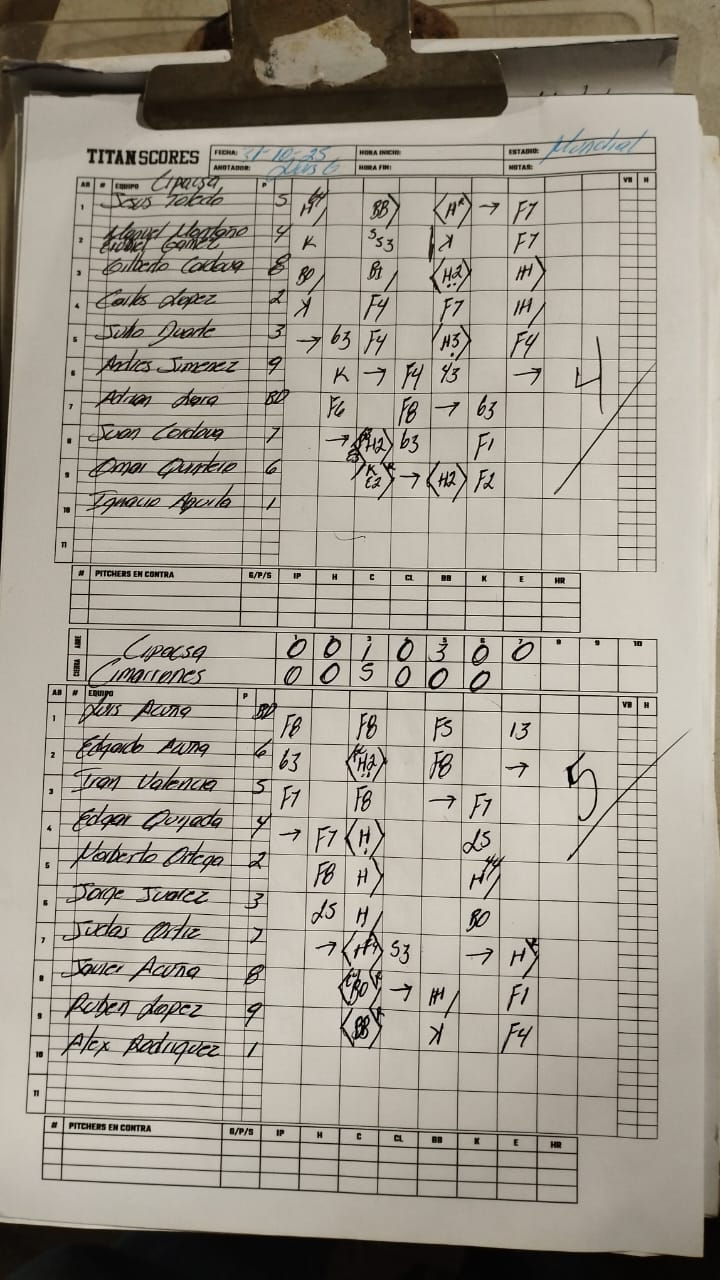 TITANSCORES
FECHA: 31-10-25 HORA INICIO: ESTADIO: Mundial
ANOTADOR: Luis G HORA FIN: NOTAS:
AB # EQUIPO Cipacsa P VB H
1 Jesus Toledo 5 H BB H → F7
2 Miguel Montaño 4 K 53 K F7
Gamez
3 Gilberto Cordova 8 BO B1 H2 IH
4 Carlos Lopez 2 K F4 F7 IH
5 Julio Duarte 3 → 63 F4 H3 F4
6 Andres Jimenez 9 K → F4 43 → 4
7 Adrian Lara BD F6 F8 → 63
8 Juan Cordova 7 → H2 63 F1
9 Omar Quintero 6 K E2 → H2 F2
10 Ignacio Aguila 1
11
# PITCHERS EN CONTRA G/P/S IP H C CL BB K E HR
ABRE 1 2 3 4 5 6 7 8 9 10
Cipacsa 0 0 1 0 3 0 0
CIERRA Cimarrones 0 0 5 0 0 0
AB # EQUIPO P VB H
1 Luis Acuña BD F8 F8 F5 13
2 Edgardo Acuña 6 63 H2 F8 →
3 Ivan Valencia 5 F7 F8 → F7 5
4 Edgar Quijada 4 → F7 H L5
5 Norberto Ortega 2 F8 H H
6 Jorge Juarez 3 L5 H BO
7 Judas Ortiz 7 → H 53 → H
8 Javier Acuña 8 BO → IH F1
9 Ruben Lopez 9 BB K F4
10 Alex Rodriguez 1
11
# PITCHERS EN CONTRA G/P/S IP H C CL BB K E HR